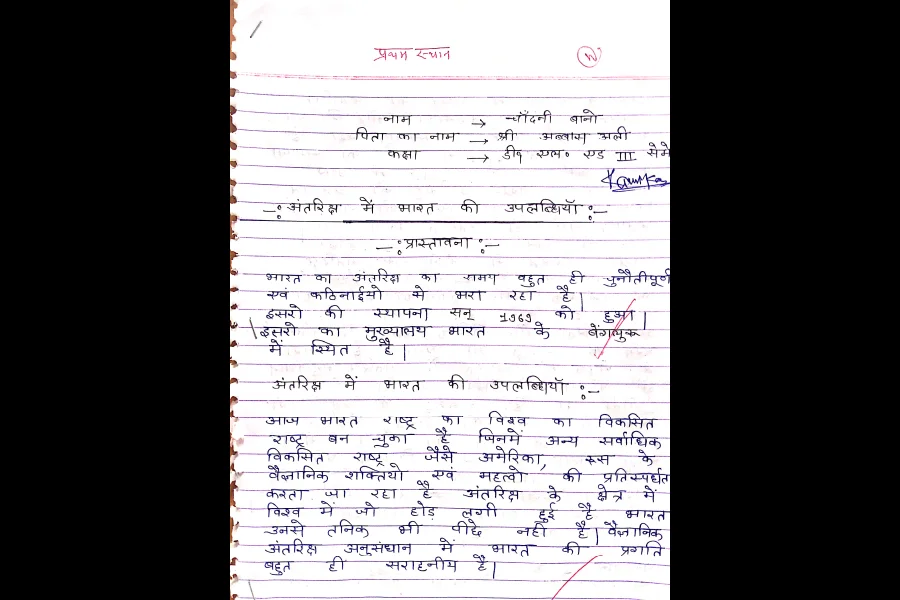 प्रथम स्थान
नाम → चाँदनी बानो
पिता का नाम → श्री अब्बास अली
कक्षा → डी० एल० एड III सेमे
-: अंतरिक्ष में भारत की उपलब्धियाँ :-
-: प्रास्तावना :-
भारत का अंतरिक्ष का समय बहुत ही चुनौतीपूर्ण
एवं कठिनाईयो मे भरा रहा है|
इसरो की स्थापना सन् 1969 को हुआ|
इसरो का मुख्यालय भारत के
में स्थित है|
अंतरिक्ष में भारत की उपलब्धियाँ :-
आज भारत राष्ट्र का विश्व का विकसित
राष्ट्र बन चुका है जिनमें अन्य सर्वाधिक
विकसित राष्ट्र जैसे अमेरिका, रूस के
वैज्ञानिक शक्तियो एवं महत्वो की प्रतिस्पर्धत
करता जा रहा है अंतरिक्ष के क्षेत्र में
विश्व में जो होड़ लगी हुई है भारत
उनसे तनिक भी पीछे नही है| वैज्ञानिक
अंतरिक्ष अनुसंधान में भारत की प्रगति
बहुत ही सराहनीय है|